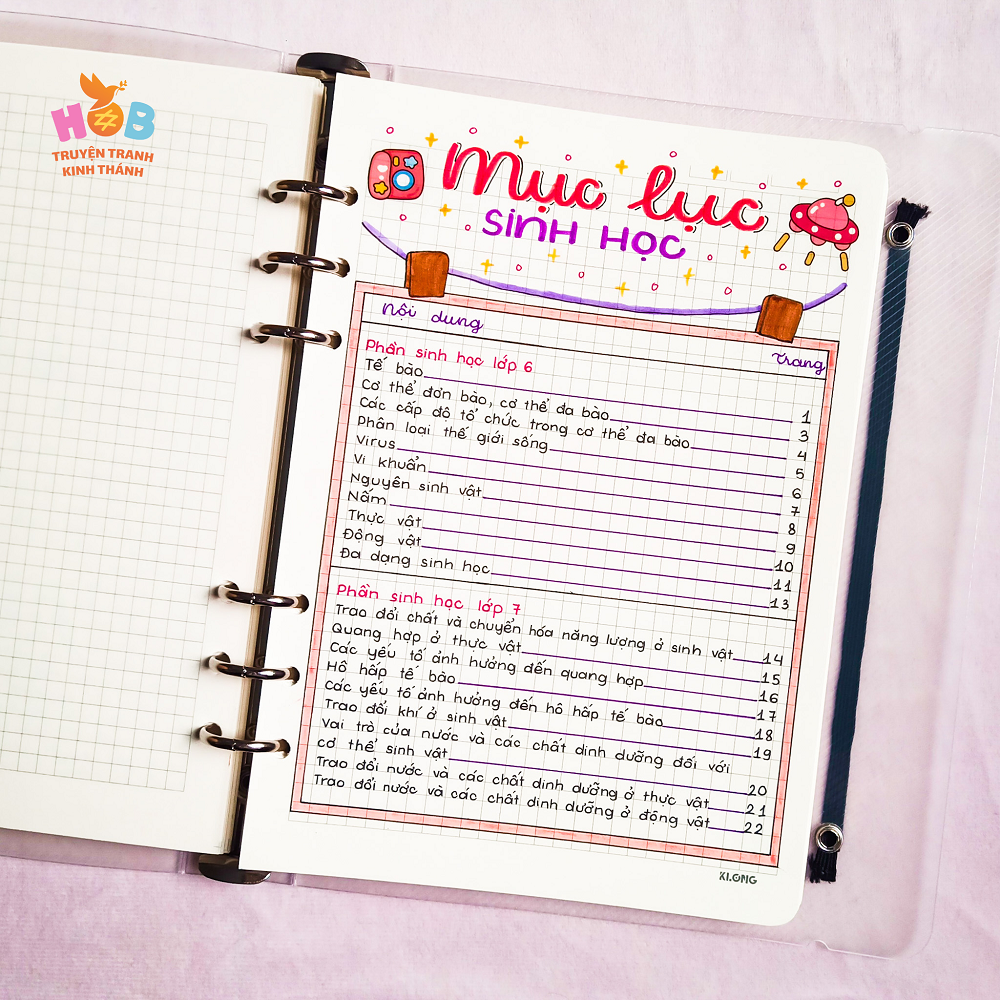 HOB
TRUYỆN TRANH
KINH THÁNH
Mục lục
SINH HỌC
Nội dung Trang
Phần sinh học lớp 6
Tế bào 1
Cơ thể đơn bào, cơ thể đa bào 3
Các cấp độ tổ chức trong cơ thể đa bào 4
Phân loại thế giới sống 5
Virus 6
Vi khuẩn 7
Nguyên sinh vật 8
Nấm 9
Thực vật 10
Động vật 11
Đa dạng sinh học 13
Phần sinh học lớp 7
Trao đổi chất và chuyển hóa năng lượng ở sinh vật 14
Quang hợp ở thực vật 15
Các yếu tố ảnh hưởng đến quang hợp 16
Hô hấp tế bào 17
Các yếu tố ảnh hưởng đến hô hấp tế bào 18
Trao đổi khí ở sinh vật 19
Vai trò của nước và các chất dinh dưỡng đối với
cơ thể sinh vật 20
Trao đổi nước và các chất dinh dưỡng ở thực vật 21
Trao đổi nước và các chất dinh dưỡng ở động vật 22
KLONG